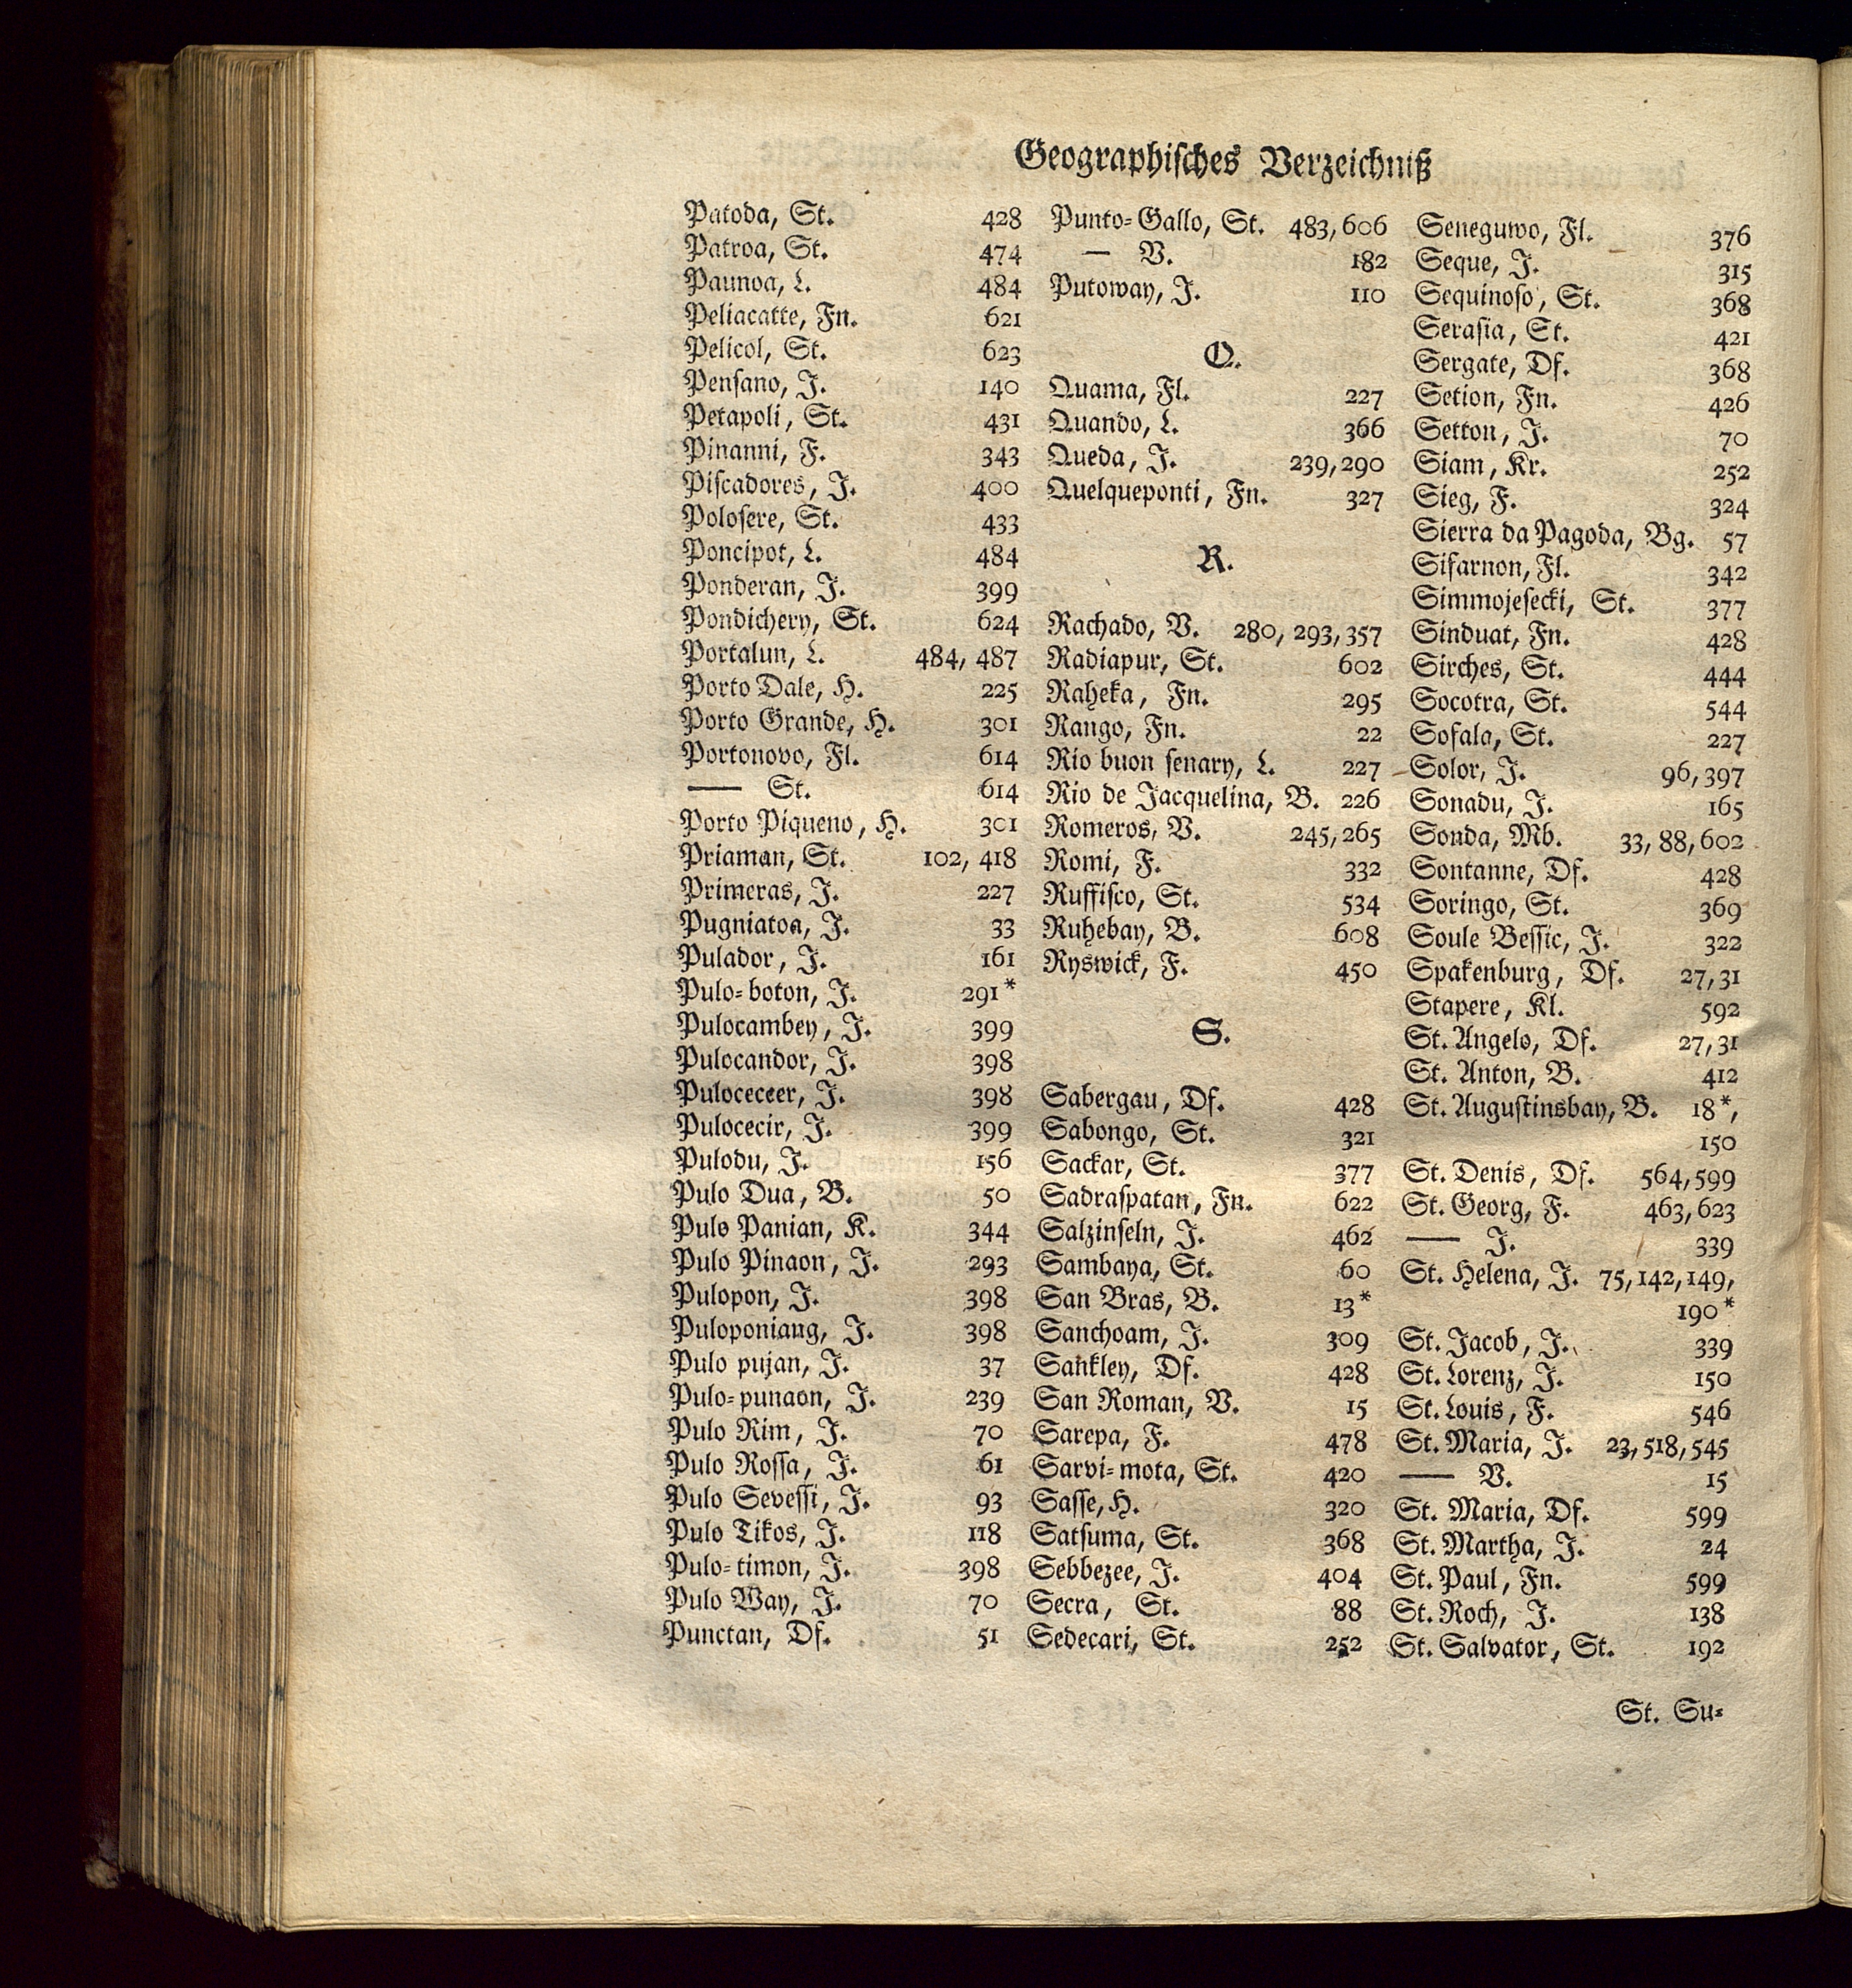 Geographisches Verzeichniß
Patoda, St. 428
Patroa, St. 474
Paunoa, L. 484
Peliacatte, Fn. 621
Pelicol, St. 623
Penſano, J. 140
Petapoli, St. 431
Pinanni, F. 343
Piſcadores, J. 400
Poloſere, St. 433
Poncipot, L. 484
Ponderan, J. 399
Pondichery, St. 624
Portalun, L. 484, 487
Porto Dale, H. 225
Porto Grande, H. 301
Portonovo, Fl. 614
— St. 614
Porto Piqueno, H. 301
Priaman, St. 102, 418
Primeras, J. 227
Pugniatoa, J. 33
Pulador, J. 161
Pulo=boton, J. 291*
Pulocambey, J. 399
Pulocandor, J. 398
Puloceceer, J. 398
Pulocecir, J. 399
Pulodu, J. 156
Pulo Dua, B. 50
Pulo Panian, K. 344
Pulo Pinaon, J. 293
Pulopon, J. 398
Puloponiang, J. 398
Pulo pujan, J. 37
Pulo=punaon, J. 239
Pulo Rim, J. 70
Pulo Roſſa, J. 61
Pulo Seveſſi, J. 93
Pulo Tikos, J. 118
Pulo=timon, J. 398
Pulo Way, J. 70
Punctan, Df. 51
Punto=Gallo, St. 483, 606
— V. 182
Putoway, J. 110
Q.
Quama, Fl. 227
Quando, L. 366
Queda, J. 239, 290
Quelqueponti, Fn. 327
R.
Rachado, V. 280, 293, 357
Radiapur, St. 602
Raheka, Fn. 295
Rango, Fn. 22
Rio buon ſenary, L. 227
Rio de Jacquelina, B. 226
Romeros, V. 245, 265
Romi, F. 332
Ruffiſco, St. 534
Ruhebay, B. 608
Ryswick, F. 450
S.
Sabergau, Df. 428
Sabongo, St. 321
Sackar, St. 377
Sadraſpatan, Fn. 622
Salzinſeln, J. 462
Sambaya, St. 60
San Bras, B. 13*
Sanchoam, J. 309
Sankley, Df. 428
San Roman, V. 15
Sarepa, F. 478
Sarvi=mota, St. 420
Saſſe, H. 320
Satſuma, St. 368
Sebbezee, J. 404
Secra, St. 88
Sedecari, St. 252
Seneguwo, Fl. 376
Seque, J. 315
Sequinoſo, St. 368
Seraſia, St. 421
Sergate, Df. 368
Setion, Fn. 426
Setton, J. 70
Siam, Kr. 252
Sieg, F. 324
Sierra da Pagoda, Bg. 57
Sifarnon, Fl. 342
Simmojeſecki, St. 377
Sinduat, Fn. 428
Sirches, St. 444
Socotra, St. 544
Sofala, St. 227
Solor, J. 96, 397
Sonadu, J. 165
Sonda, Mb. 33, 88, 602
Sontanne, Df. 428
Soringo, St. 369
Soule Beſſic, J. 322
Spakenburg, Df. 27, 31
Stapere, Kl. 592
St. Angelo, Df. 27, 31
St. Anton, B. 412
St. Auguſtinsbay, B. 18*,
150
St. Denis, Df. 564, 599
St. Georg, F. 463, 623
— J. 339
St. Helena, J. 75, 142, 149,
190*
St. Jacob, J. 339
St. Lorenz, J. 150
St. Louis, F. 546
St. Maria, J. 23, 518, 545
— V. 15
St. Maria, Df. 599
St. Martha, J. 24
St. Paul, Fn. 599
St. Roch, J. 138
St. Salvator, St. 192
St. Su=